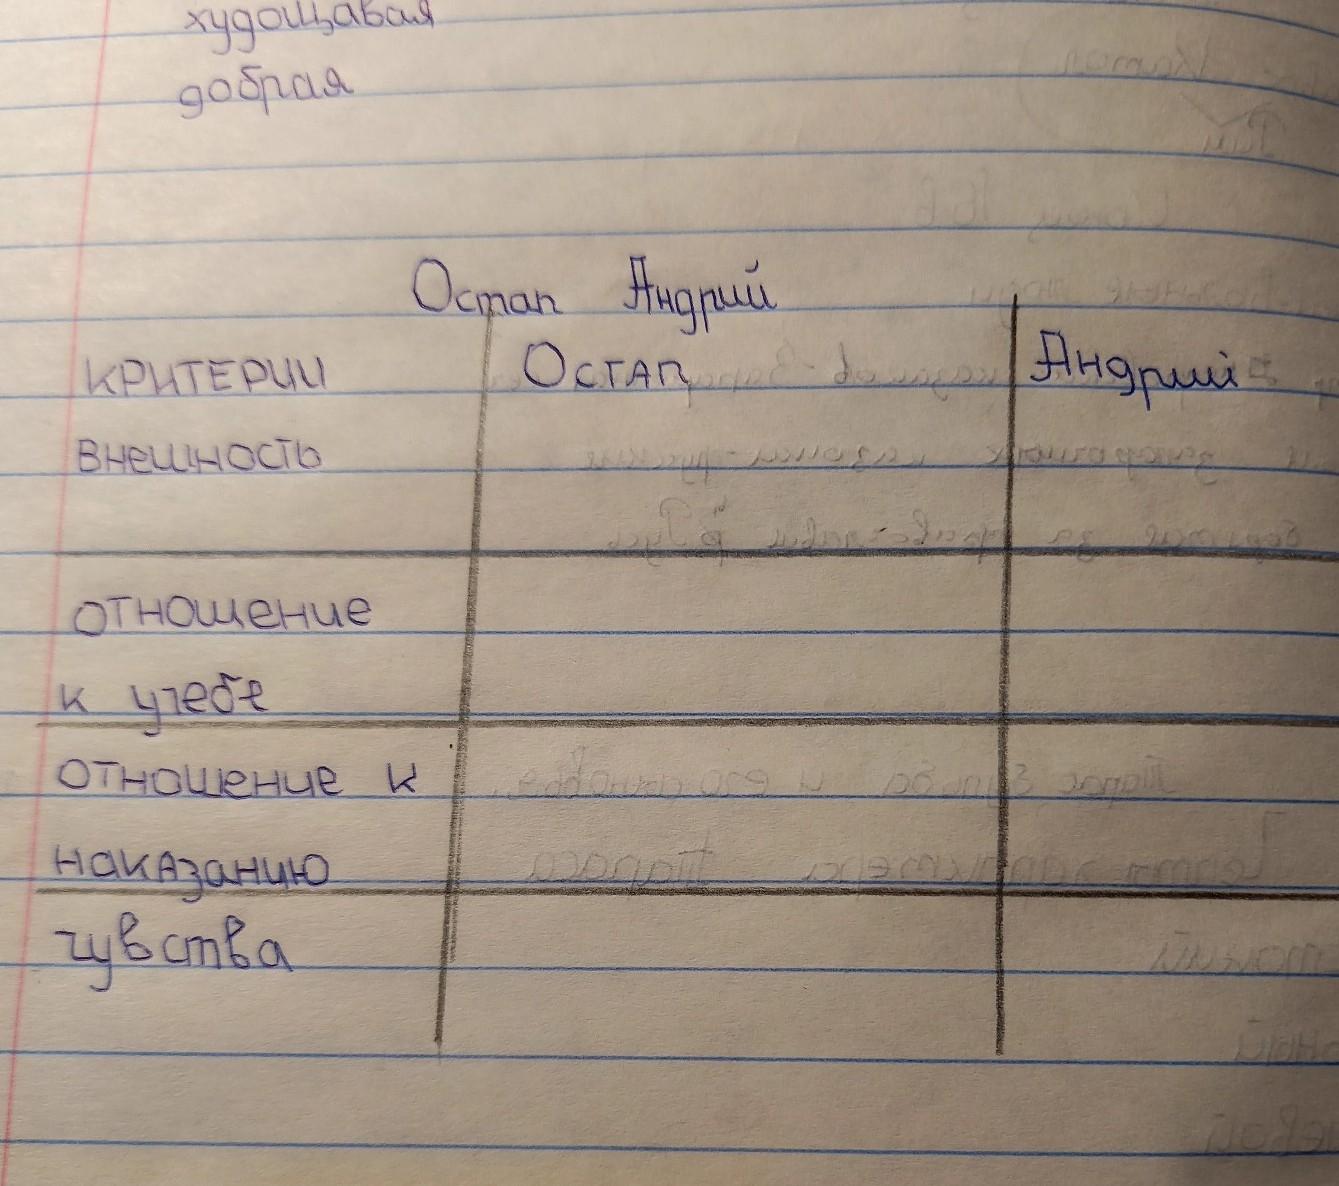 худощавая
добрая
Остап Андрий
КРИТЕРИИ Остап Андрий
внешность
отношение
к учебе
отношение к
наказанию
чувства